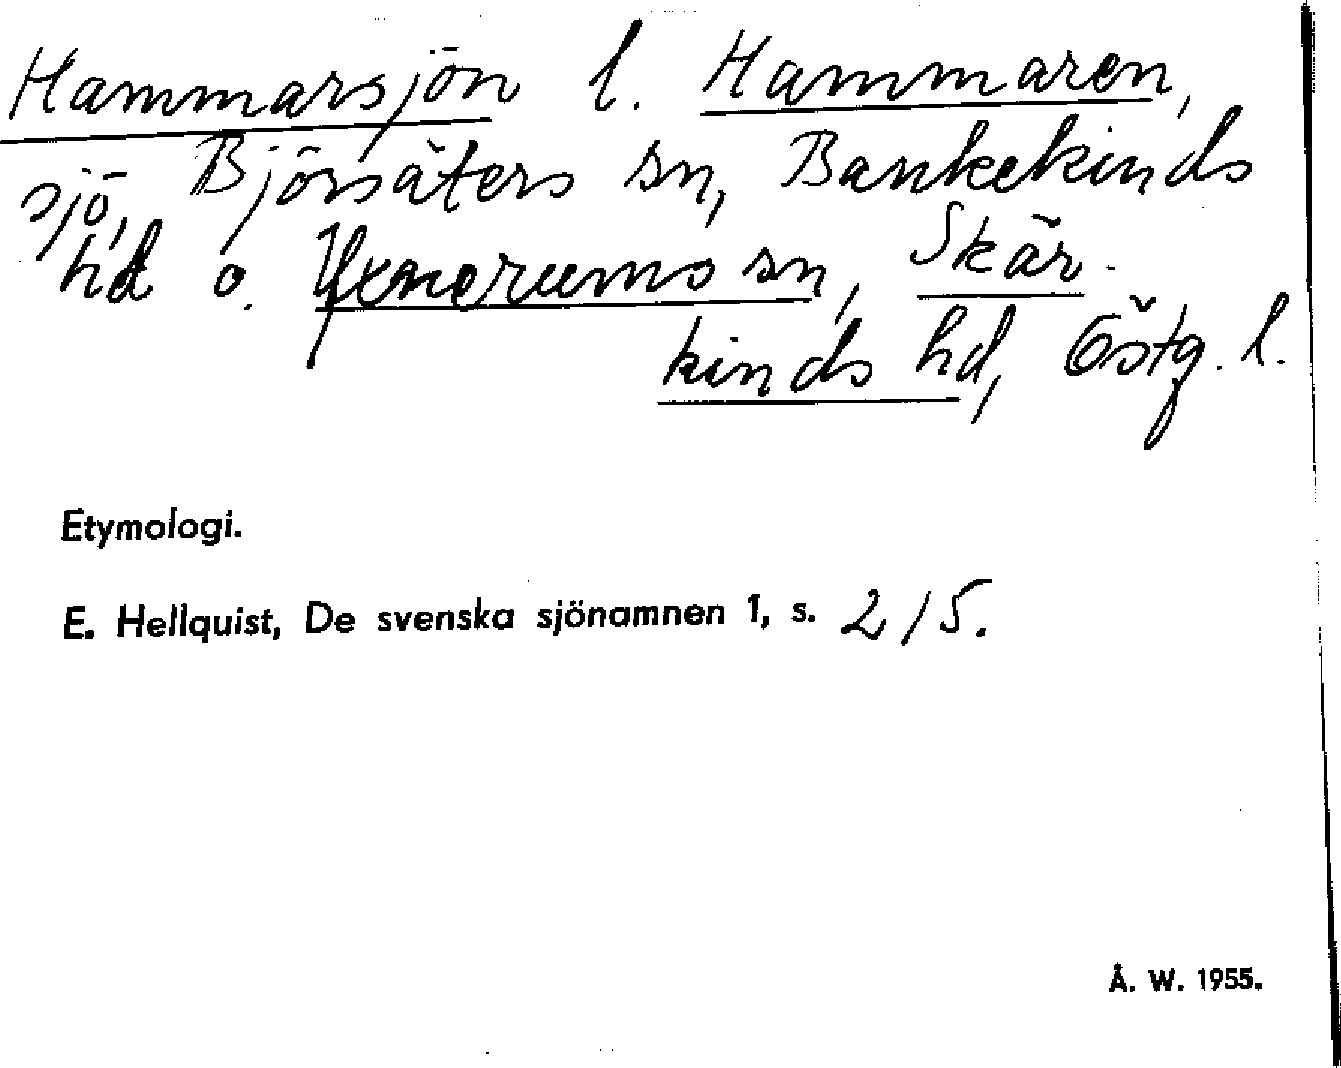 Hammarsjön l. Hammaren,
sjö, Björsäters sn, Bankekinds
hd o. Yxnerums sn, Skär-
kinds hd, Östg. l.
Etymologi.
E. Hellquist, De svenska sjönamnen 1, s. 215.
Å. W. 1955.